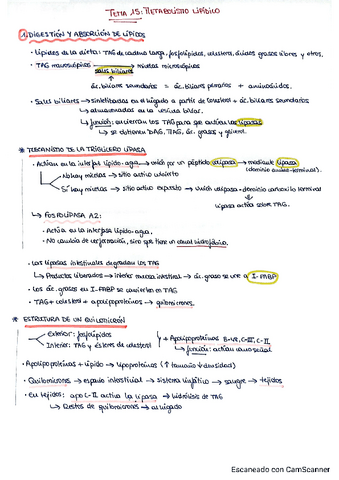 TEMA 15: METABOLISMO LIPÍDICO
1. DIGESTIÓN Y ABSORCIÓN DE LÍPICOS
• Lípidos de la dieta: TAG de cadena larga, fosfolípidos, colesterol, ácidos grasos libres y otros.
• TAG macroscópicos → micelas microscópicas
sales biliares
ác. biliares secundarios = ác. biliares primarios + aminoácidos.
• Sales biliares → sintetizadas en el hígado a partir de colesterol + ác. biliares secundarios
→ almacenadas en la vesícula biliar.
→ función: envierten los TAG para que actúen las lipasas
→ se obtienen DAG, MAG, ác. grasos y glicerol.
* MECANISMO DE LA TRIGLICERO LIPASA
• Actúa en la interfaz lípido-agua → unida por un péptido colipasa → mediante lipasa
(dominio amino-terminal).
No hay micelas → sitio activo cubierto
Sí hay micelas → sitio activo expuesto → unión colipasa - dominio carboxilo terminal
lipasa actúa sobre TAG.
→ FOSFOLIPASA A2:
• Actúa en la interfase lípido-agua.
• No cambia de conformación, sino que tiene un canal hidrofóbico.
• Las lipasas intestinales degradan los TAG
→ Productos liberados → interior mucosa intestinal → ác. graso se une a I-FABP
• Los ác. grasos en I-FABP se convierten en TAG
• TAG + colesterol + apolipoproteínas → quilomicrones.
* ESTRUCTURA DE UN QUILOMICRÓN
Exterior: fosfolípidos
Interior: TAG y ésteres de colesterol
y + Apolipoproteínas B-48, C-III, C-II
→ función: actúan como señal
• Apolipoproteínas + lípido → lipoproteínas (↑ tamaño ↓ densidad)
• Quilomicrones → espacio intersticial → sistema linfático → sangre → tejidos
• En tejidos: apo C-II activa la lipasa → hidrólisis de TAG
→ Restos de quilomicrones → al hígado
Escaneado con CamScanner